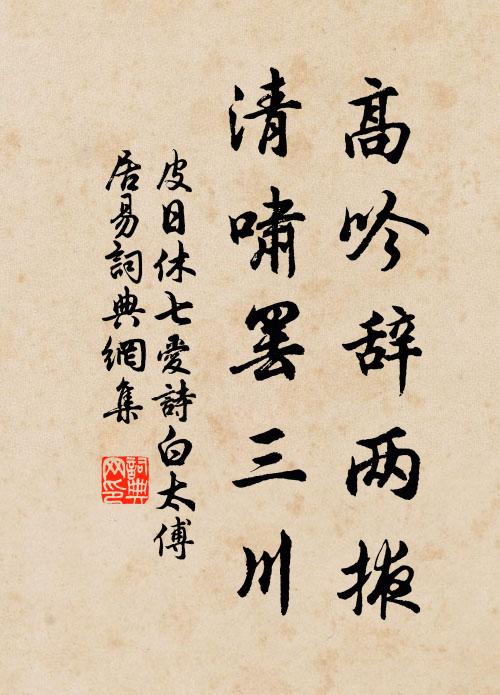 高吟辞两掖
清嘯罢三川
皮日休七愛詩白太傅
居易詞典網集
詞典
网印